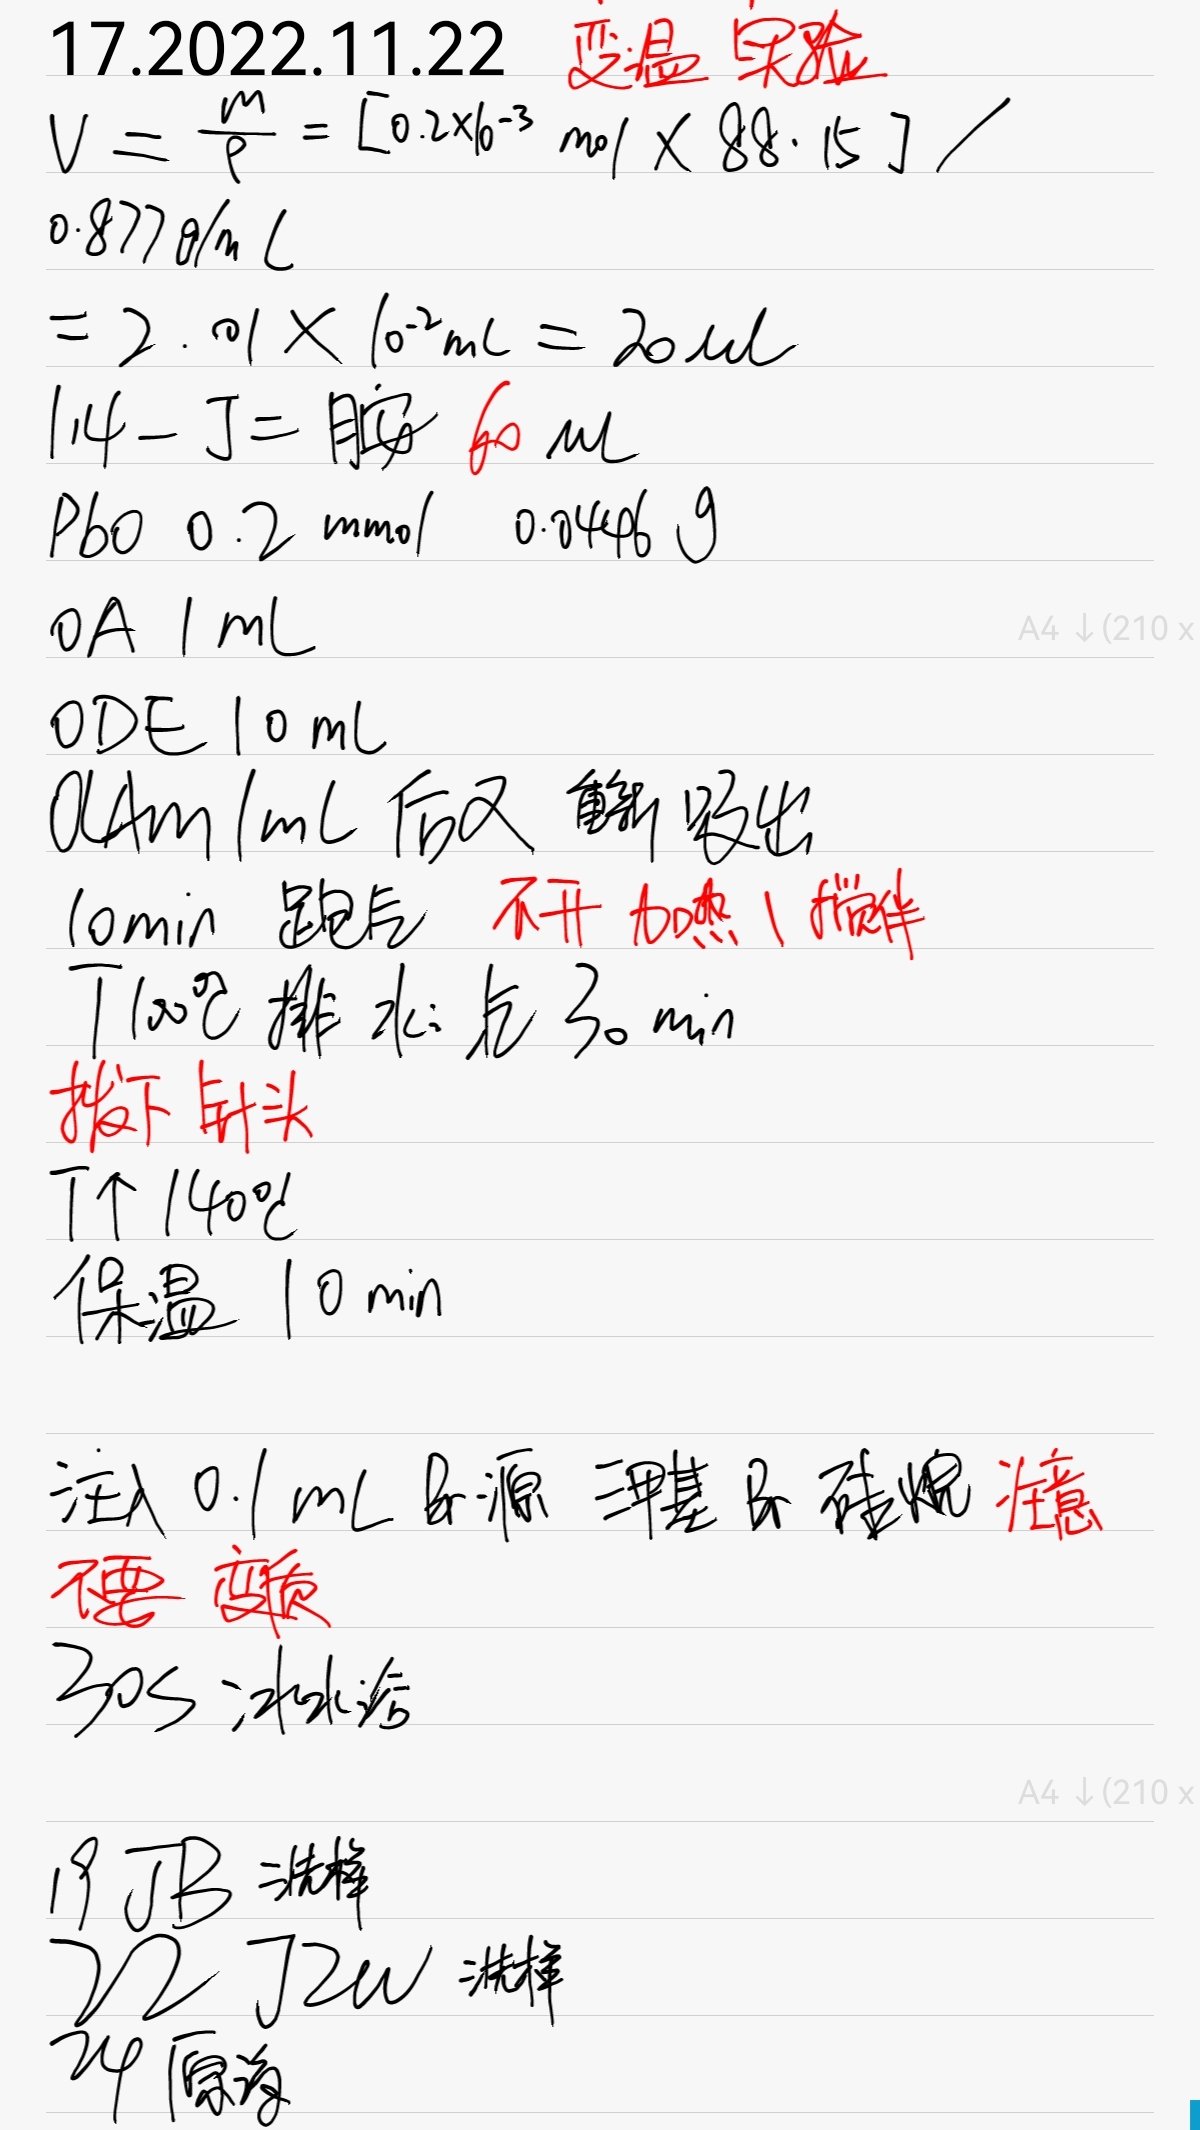 17.2022.11.22 变温实验
V = m/ρ = [0.2×10⁻³ mol × 88.15] /
0.877 g/mL
= 2.01 × 10⁻² mL = 20 uL
1,4-丁二胺 60 uL
PbO 0.2 mmol 0.0446 g
OA 1 mL
A4 ↓(210 x
ODE 10 mL
OLAm 1 mL 后又重新吸出
10min 跑气 不开加热、搅拌
T 100℃ 排水气 30 min
拔下针头
T↑ 140℃
保温 10 min
注入 0.1 mL Br源 三甲基Br硅烷 注意
不要变质
30s 冰水浴
A4 ↓(210 x
19 JB 洗样
22 JZW 洗样
24 原液